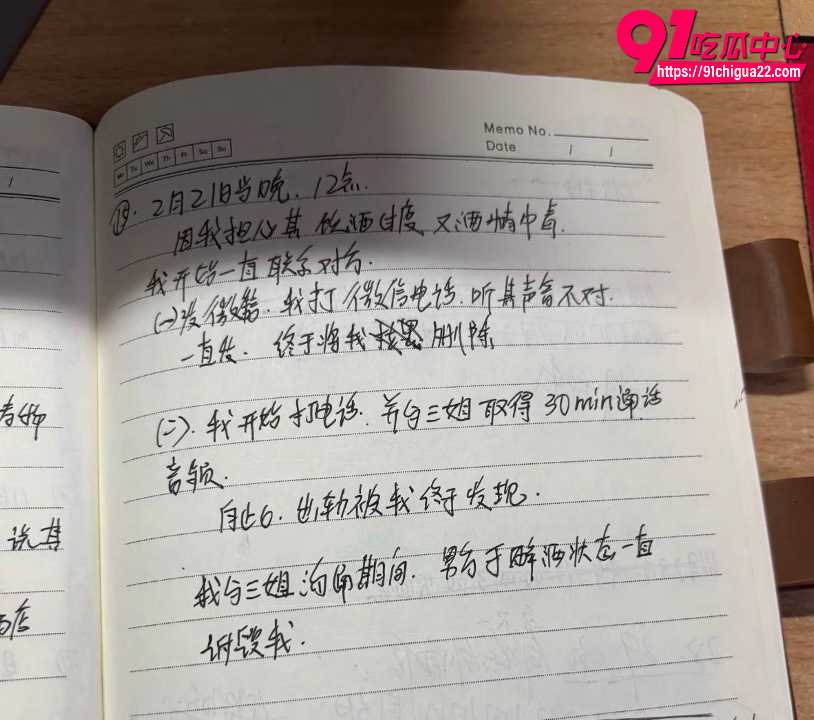 91吃瓜中心
https://91chigua22.com
Memo No.
Date / /
Mo Tu We Th Fr Sa Su
⑲. 2月21日当晚. 12点.
因我担心其饮酒过度 又酒精中毒.
我开始一直联系对方.
(一)发微信. 我打微信电话. 听其声音不对.
一直发. 终于将我删除
(二). 我开始打电话. 并与三姐取得30min通话
音频.
自此. 出轨被我终于发现.
我与三姐沟通期间. 男方于醉酒状态一直
诋毁我.
说其
店